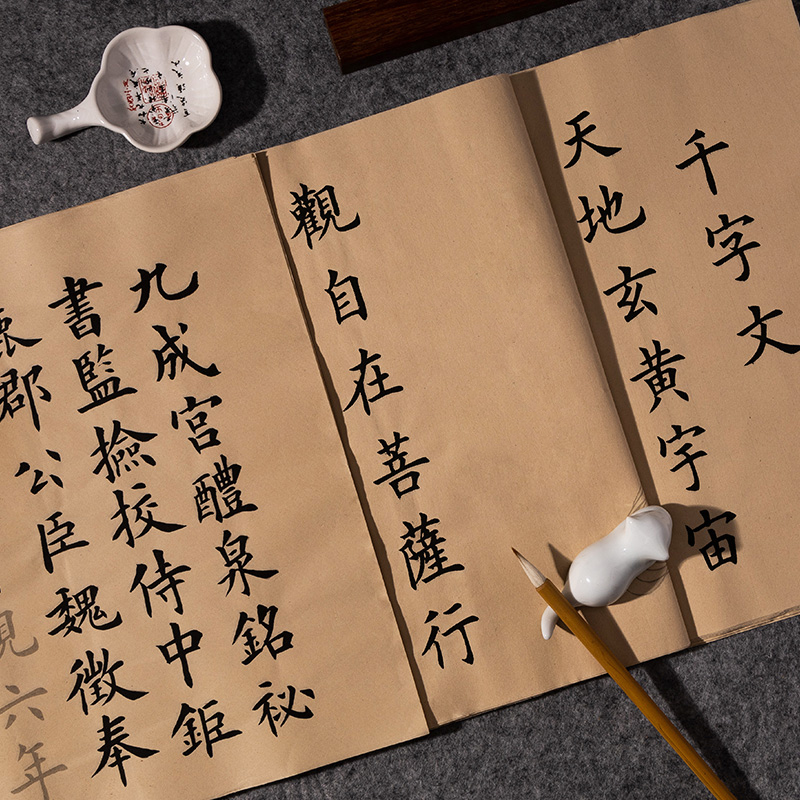 千字文
天地玄黄宇宙
觀自在菩薩行
九成宮醴泉銘祕
書監撿挍侍中鉅
鹿郡公臣魏徵奉
觀六年